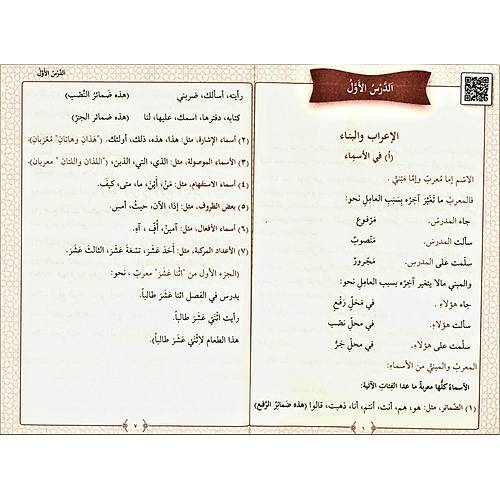 اَلدَّرْسُ الأَوَّلُ
الإعراب والبناء
(أ) في الأسماء
الاسم إما معربٌ وإمّا مَبْنِيٌّ .
فالمعربُ ما تَغَيَّرَ آخِرُه بِسَبَبِ العامِلِ نحو:
جاء المدرسُ. مَرْفوع
سألت المدرسَ. مَنْصوبٌ
سلّمت على المدرسِ. مَجْرورٌ
والمبني مالا يتغير آخِرُه بسبب العامل نحو:
جاء هؤلاءِ . في مَحَلِّ رَفْعٍ
سألت هؤلاءِ. في محلِّ نصْب
سلّمت على هؤلاءِ. في محلِ جَرٍّ
المعربُ والمبنيُّ من الأسماءِ:
الأسماءُ كلُّها معربةٌ ما عدا الفِئاتِ الآتية:
(١) الضّمائر، مثل: هو، هم، أنت، أنتم، أنا، ذهبت، قالوا (هذه ضمائرُ الرَّفع)
٦
الدَّرْسُ الأَوَّلُ
رأيته، أسألك، ضربني (هذه ضَمائرُ النَّصْب)
كتابه، دفترها، اسمك، عليها، لنا (هذه ضمائر الجرّ)
(٢) أسماء الإشارة، مثل: هذا، هذه، ذلك، أولئك. "هَذانِ وهاتانِ" مُعْرَبانِ)
(٣) الأسماء الموصولة، مثل: الذي، التي، الذين، "اللذان واللتان " معربان)
(٤) أسماء الاستفهام، مثل: مَنْ، أَيْنَ، ما، متى، كيفَ.
(٥) بعض الظروف، مثل: إذا، الآن، حيثُ، أمسِ.
(٦) أسماء الأفعال، مثل: آمينْ، أُفٍّ ، آهِ.
(٧) الأعداد المركبة، مثل: أَحَدَ عَشَرَ، تسعَةَ عَشَرَ، الثالثَ عَشَرَ.
(الجزء الأول من "اثْنا عَشَرَ" معربٌ ، نحو:
يدرس في الفصل اثنا عَشَرَ طالباً.
رأيت اثْنَيْ عَشَرَ طالباً.
هذا الطعام لاثْنَيْ عَشَرَ طالباً.
٧